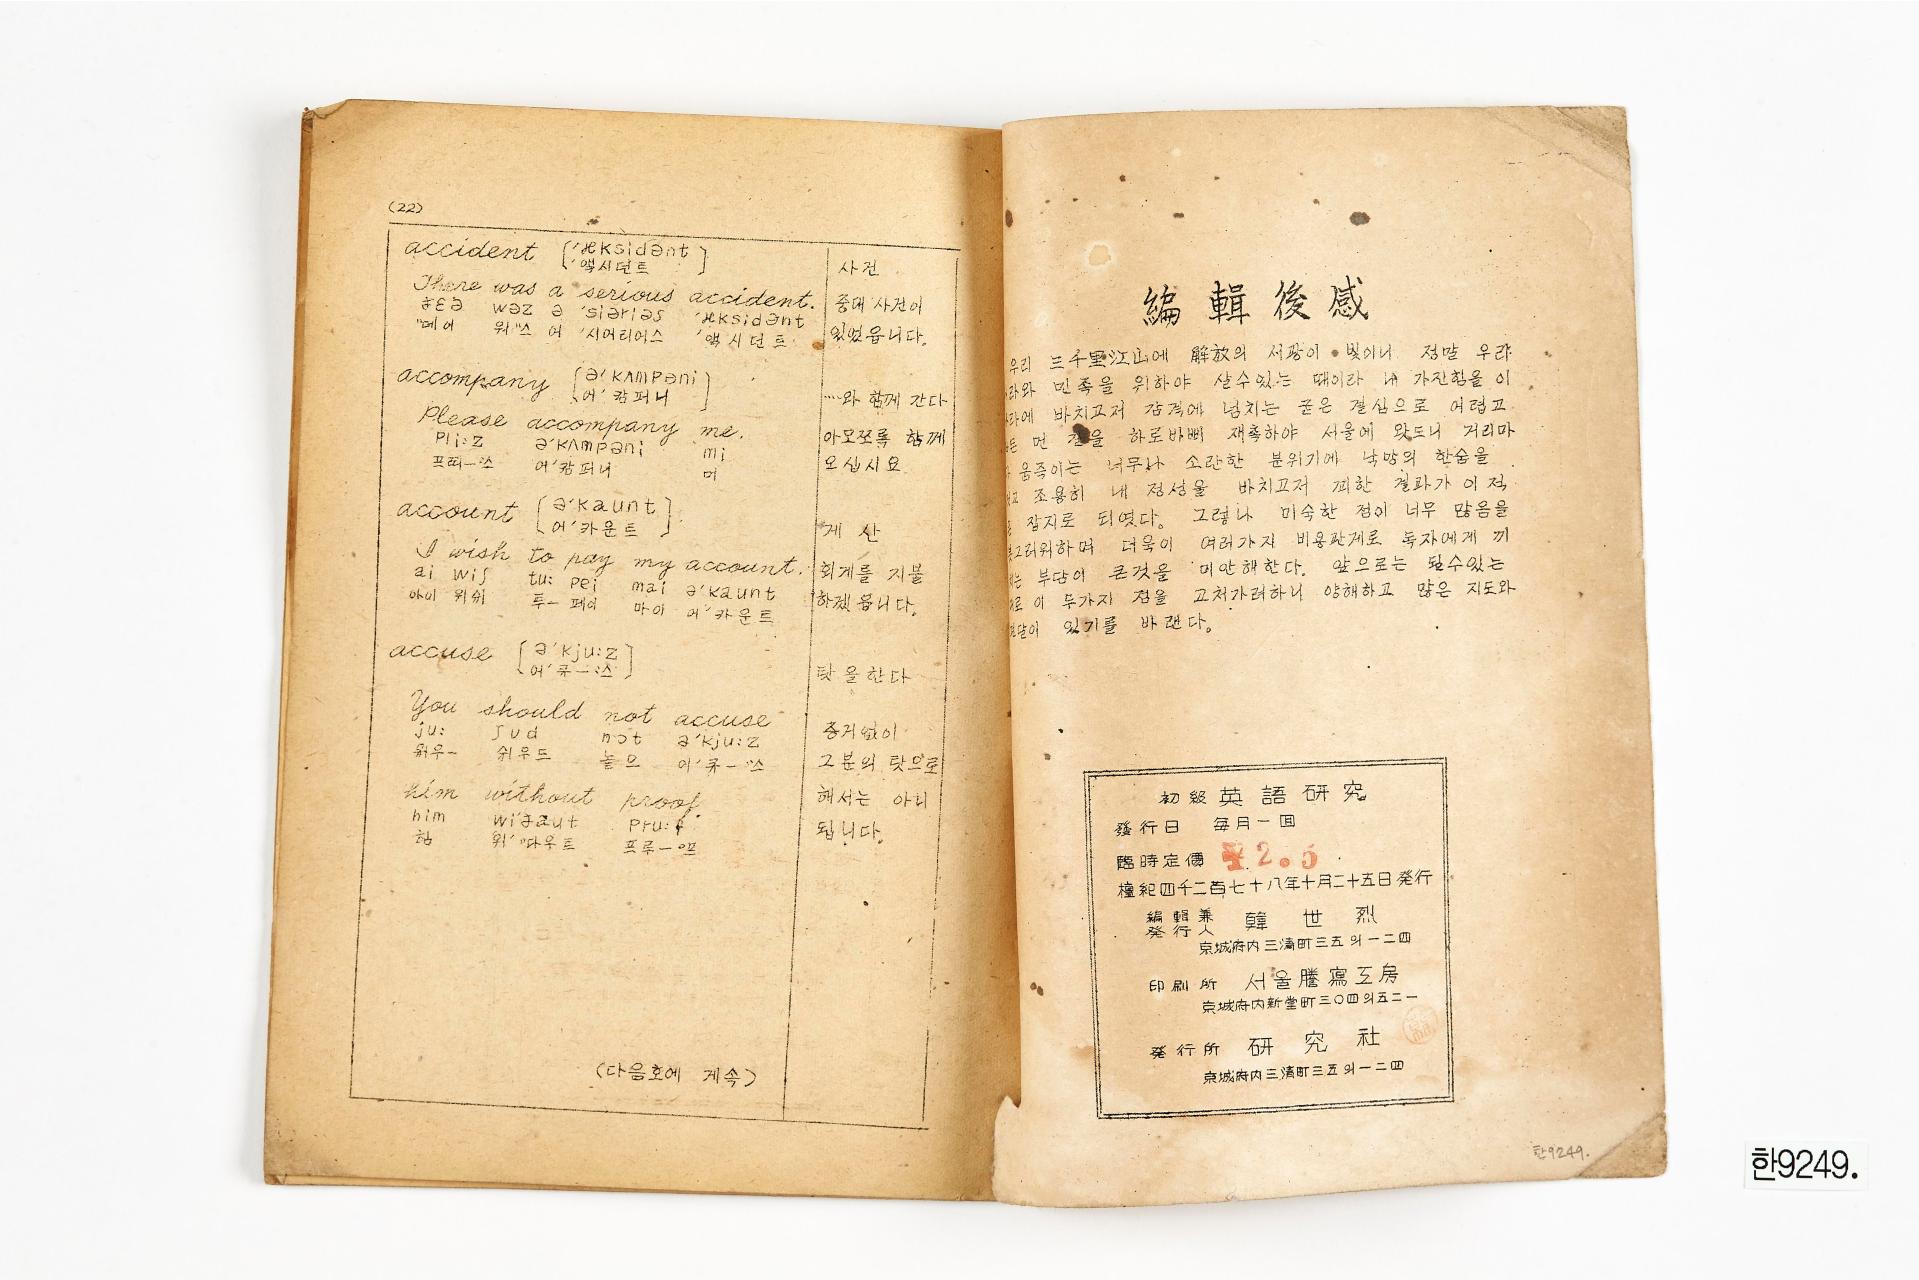 (22)
accident ['æksidənt]
'액시던트
사건
There was a serious accident.
ðɛə wəz ə 'siəriəs 'æksidənt
"데어 워"스 어 '시어리어스 '액시던트
중대 사건이
있었읍니다.
accompany [ə'kʌmpəni]
어'캄퍼니
……와 함께 간다
Please accompany me.
pli:z ə'kʌmpəni mi
어'캄퍼니 미
아모쪼록 함께
오십시요
account [ə'kaunt]
어'카운트
게 산
I wish to pay my account.
ai wiʃ tu: pei mai ə'kaunt
아이 위쉬 투ー 페이 마이 어'카운트
회게를 지불
하겠읍니다.
accuse [ə'kju:z]
어'큐ー"스
탓을한다
You should not accuse
ju: ʃud nɔt ə'kju:z
쉬우드 놑으 어'큐ー"스
증거없이
그분의 탓으로
him without proof.
him wi'ðaut pru:f
힘 위'"따우트 프루ー프
해서는 아니
됩니다.
(다음호에 게속)
編輯後感
우리 三千里江山에 解放의 서광이 빛이니 정말 우리
라와 민족을 위하야 살수있는 때이라 내 가진힘을 이
라에 바치고저 감격에 넘치는 굳은 결심으로 어렵고
먼 길을 하로바삐 재촉하야 서울에 왓드니 거리마
움즉이는 너무나 소란한 분위기에 낙망의 한숨을
고 조용히 내 정성을 바치고저 꾀한 결과가 이 적
잡지로 되엿다。 그렇나 미숙한 점이 너무 많음을
그러워하며 더욱이 여러가지 비용관게로 독자에게 끼
는 부담이 큰것을 미안해한다。 앞으로는 될수있는
로 이 두가지 점을 고처가려하니 양해하고 많은 지도와
달이 있기를 바랜다。
初級 英語研究
發行日 每月一回
臨時定價 2.5
檀紀四千二百七十八年十月二十五日発行
編輯兼
発行人 韓世烈
京城府内三淸町三五의一二四
印刷所 서울謄寫工房
京城府内新堂町三〇四의五二一
発行所 研究社
京城府内三淸町三五의一二四
한9249.
한9249.